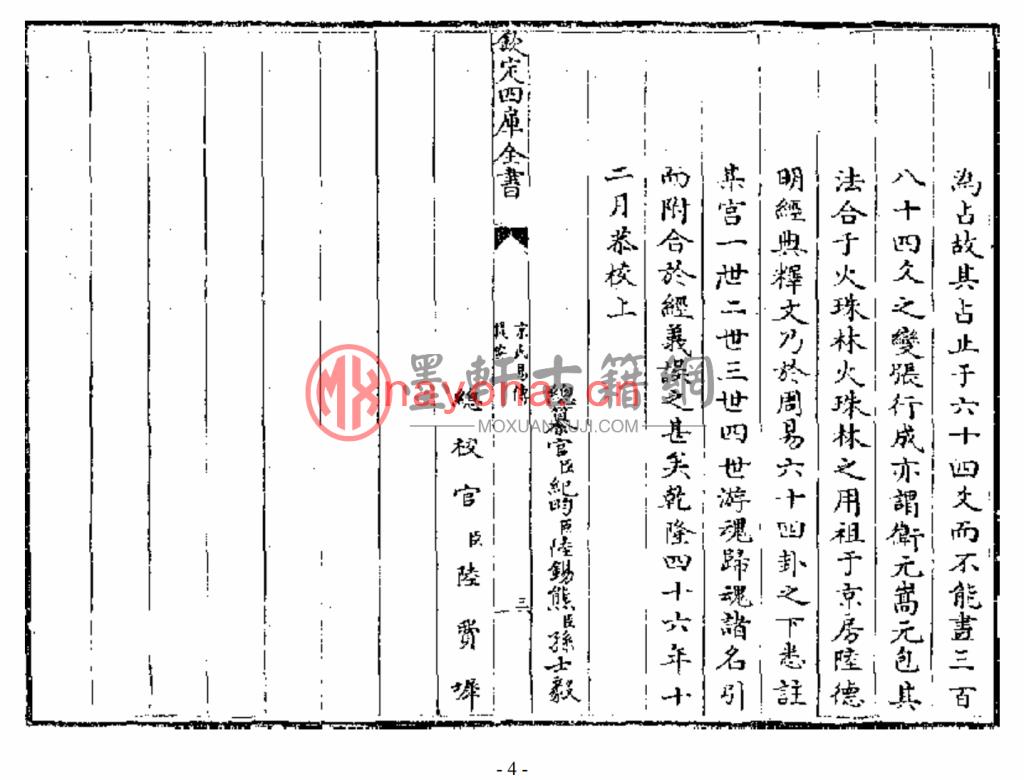 為占故其占止于六十四爻而不能盡三百
八十四爻之變張行成亦謂衛元嵩元包其
法合于火珠林火珠林之用祖于京房陸德
明經典釋文乃於周易六十四卦之下悉註
某宫一世二世三世四世游魂歸魂諸名引
而附合於經義誤之甚矣乾隆四十六年十
二月恭校上
總纂官臣紀昀臣陸錫熊臣孫士毅
欽定四庫全書
京氏易傳
提要
三
總校官臣陸費墀
墨軒古籍網
nayona.cn
MX
MOXUANGUJI.COM
- 4 -